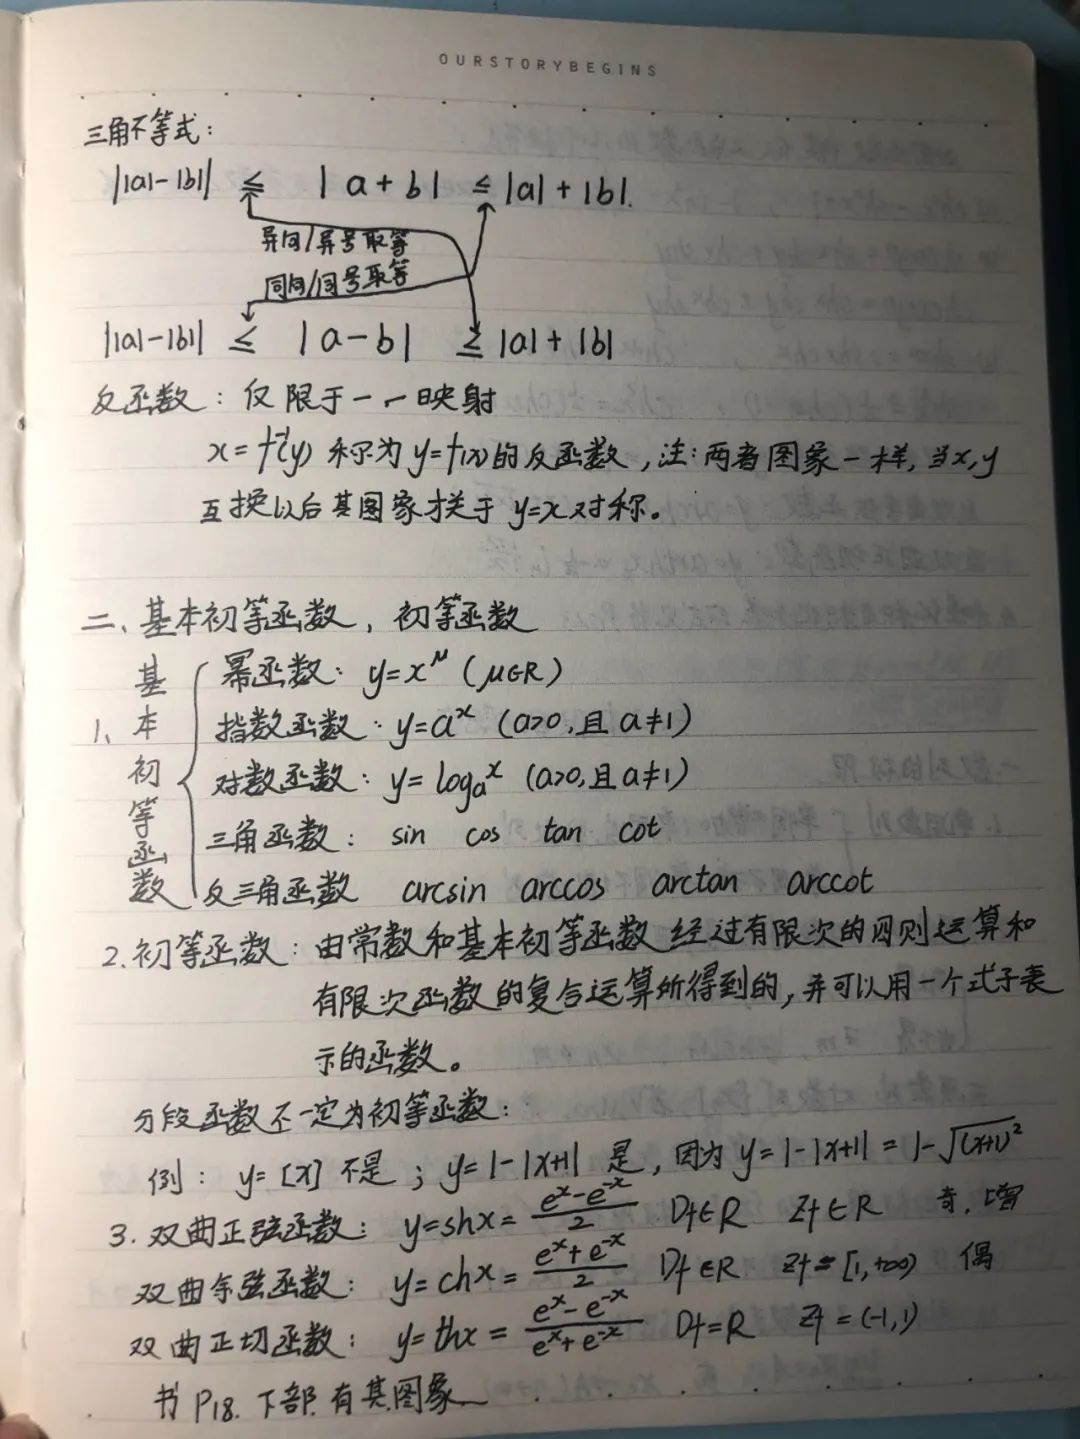 OURSTORYBEGINS
三角不等式:
||a|-|b|| ≤ |a+b| ≤ |a|+|b|.
异向/异号取等
同向/同号取等
||a|-|b|| ≤ |a-b| ≤ |a|+|b|
反函数:仅限于一一映射
x=f⁻¹(y) 称为y=f(x)的反函数,注:两者图象一样,当x,y
互换以后其图象才关于y=x对称。
二、基本初等函数,初等函数
1、基本初等函数
幂函数: y=x^μ (μ∈R)
指数函数: y=a^x (a>0,且a≠1)
对数函数: y=log_a^x (a>0,且a≠1)
三角函数: sin cos tan cot
反三角函数 arcsin arccos arctan arccot
2.初等函数:由常数和基本初等函数经过有限次的四则运算和
有限次函数的复合运算所得到的,并可以用一个式子表
示的函数。
分段函数不一定为初等函数:
例: y=[x] 不是; y=1-|x+1| 是,因为y=1-|x+1|=1-√(x+1)²
3.双曲正弦函数: y=shx=(e^x-e^-x)/2 Df∈R Zf∈R 奇.增
双曲余弦函数: y=chx=(e^x+e^-x)/2 Df∈R Zf=[1,+∞) 偶
双曲正切函数: y=thx=(e^x-e^-x)/(e^x+e^-x) Df=R Zf=(-1,1)
书P18.下部.有其图象